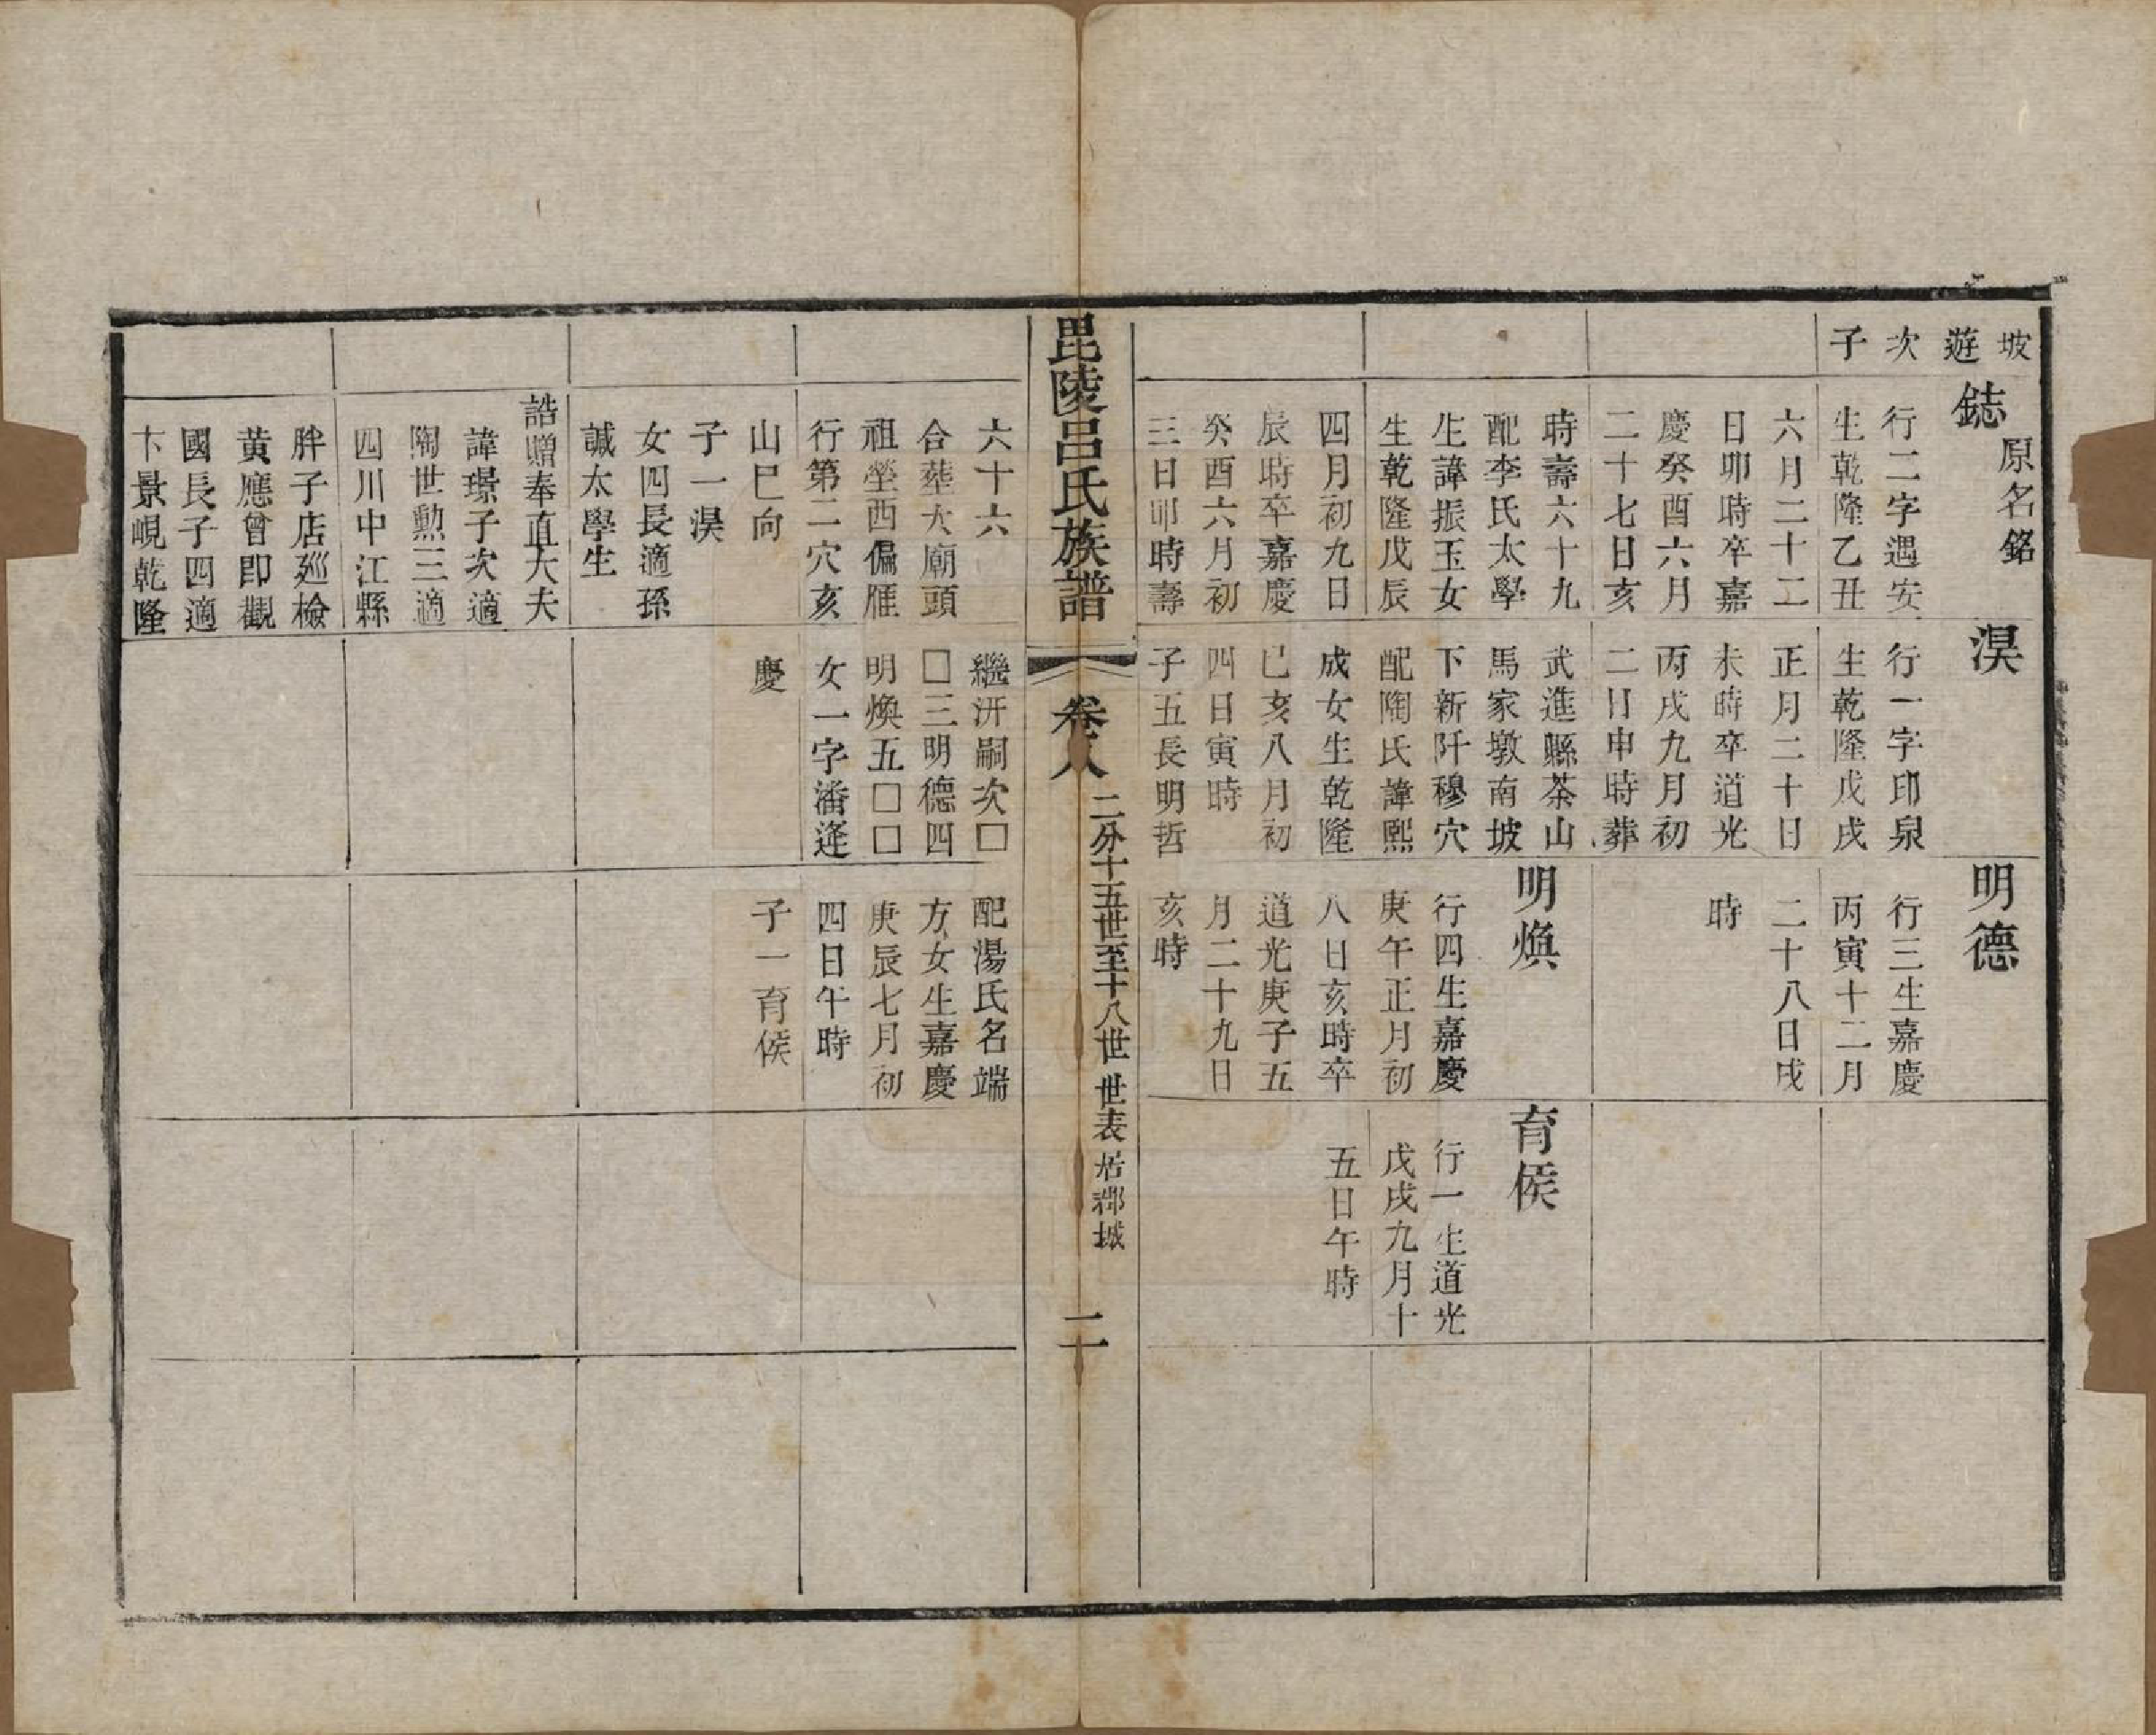 坡
遊
次
子
鋕
原名銘
行二字遇安
生乾隆乙丑
六月二十二
日卯時卒嘉
慶癸酉六月
二十七日亥
時壽六十九
配李氏太學
生諱振玉女
生乾隆戊辰
四月初九日
辰時卒嘉慶
癸酉六月初
三日卯時壽
淏
行一字印泉
生乾隆戊戌
正月二十日
未時卒道光
丙戌九月初
二日申時葬
武進縣茶山
馬家墩南坡
下新阡穆穴
配陶氏諱熙
成女生乾隆
己亥八月初
四日寅時
子五長明哲
明德
行三生嘉慶
丙寅十二月
二十八日戌
時
明煥
行四生嘉慶
庚午正月初
八日亥時卒
道光庚子五
月二十九日
亥時
育侯
行一生道光
戊戌九月十
五日午時
毘陵呂氏族譜
卷八
二分十五世至十八世 世表 居郡城
二十
六十六
合葬大廟頭
祖塋西偏雁
行第二穴亥
山巳向
子一淏
女四長適孫
諴太學生
誥贈奉直大夫
諱璟子次適
陶世勳三適
四川中江縣
胖子店巡檢
黄應曾即觀
國長子四適
卞景峴乾隆
繼汧嗣次□
□三明德四
明煥五□□
女一字潘逢
慶
配湯氏名端
方女生嘉慶
庚辰七月初
四日午時
子一育侯